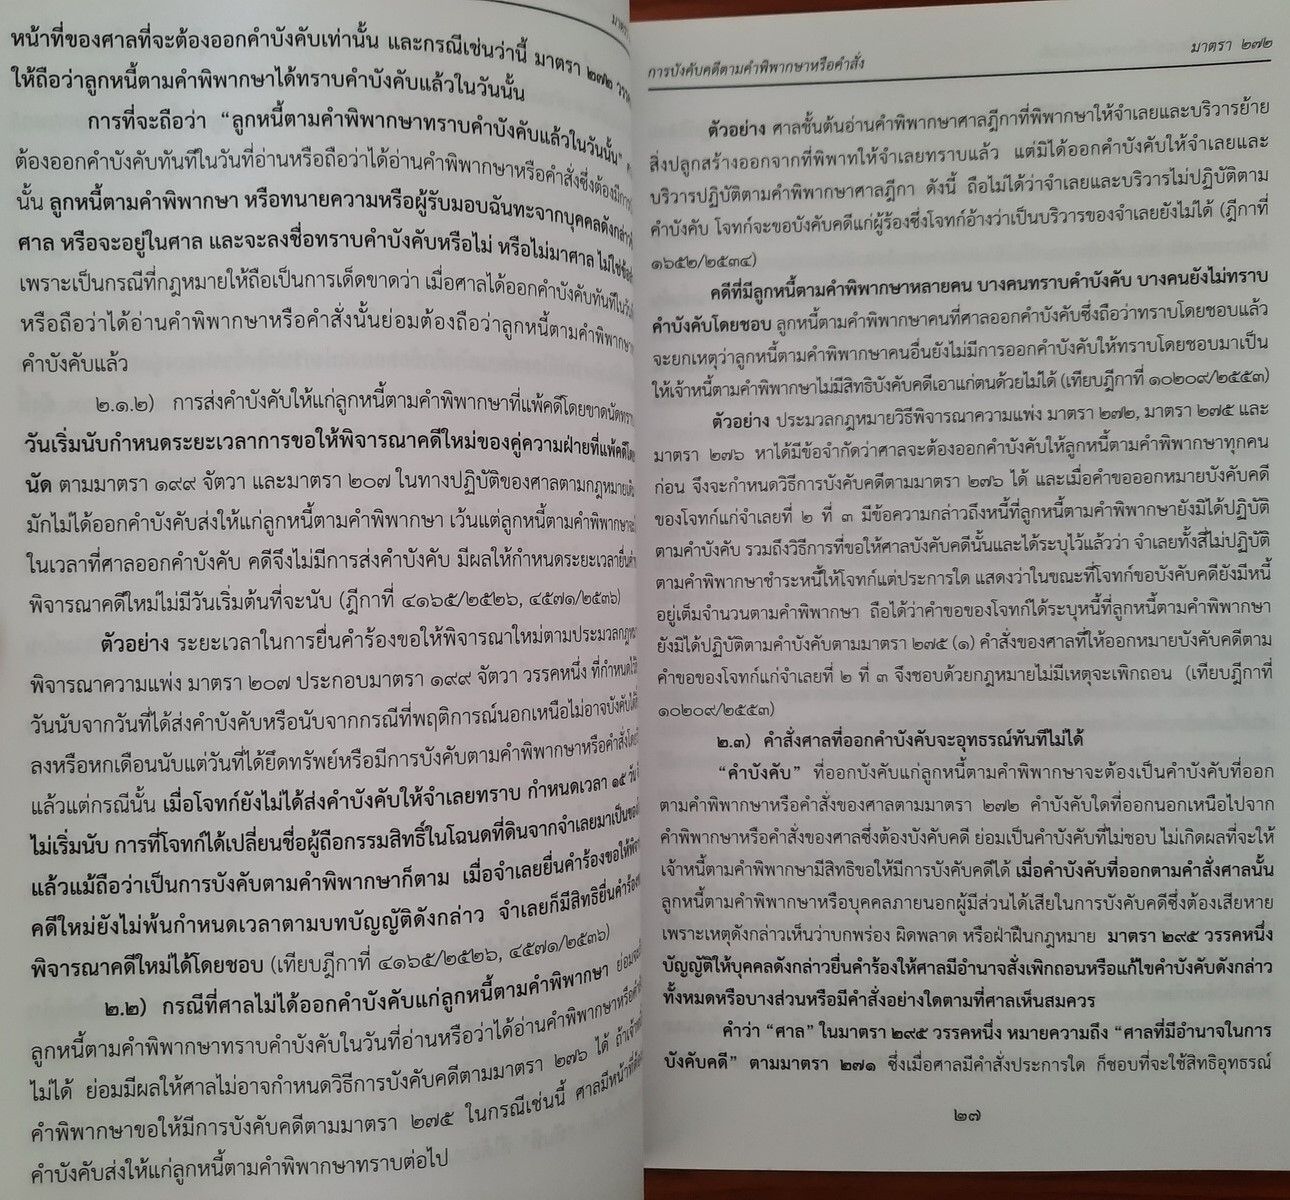 หน้าที่ของศาลที่จะต้องออกคำบังคับเท่านั้น และกรณีเช่นว่านี้ มาตรา ๒๗๒ วรรค
ให้ถือว่าลูกหนี้ตามคำพิพากษาได้ทราบคำบังคับแล้วในวันนั้น
การที่จะถือว่า “ลูกหนี้ตามคำพิพากษาทราบคำบังคับแล้วในวันนั้น”
ต้องออกคำบังคับทันทีในวันที่อ่านหรือถือว่าได้อ่านคำพิพากษาหรือคำสั่งซึ่งต้องมีการ
นั้น ลูกหนี้ตามคำพิพากษา หรือทนายความหรือผู้รับมอบฉันทะจากบุคคลดังกล่าว
ศาล หรือจะอยู่ในศาล และจะลงชื่อทราบคำบังคับหรือไม่ หรือไม่มาศาล ไม่ใช่
เพราะเป็นกรณีที่กฎหมายให้ถือเป็นการเด็ดขาดว่า เมื่อศาลได้ออกคำบังคับทันทีใน
หรือถือว่าได้อ่านคำพิพากษาหรือคำสั่งนั้นย่อมต้องถือว่าลูกหนี้ตามคำพิพากษา
คำบังคับแล้ว
๒.๑.๒) การส่งคำบังคับให้แก่ลูกหนี้ตามคำพิพากษาที่แพ้คดีโดยขาดนัด
วันเริ่มนับกำหนดระยะเวลาการขอให้พิจารณาคดีใหม่ของคู่ความฝ่ายที่แพ้คดี
นัด ตามมาตรา ๑๙๙ จัตวา และมาตรา ๒๐๗ ในทางปฏิบัติของศาลตามกฎหมาย
มักไม่ได้ออกคำบังคับส่งให้แก่ลูกหนี้ตามคำพิพากษา เว้นแต่ลูกหนี้ตามคำพิพากษา
ในเวลาที่ศาลออกคำบังคับ คดีจึงไม่มีการส่งคำบังคับ มีผลให้กำหนดระยะเวลา
พิจารณาคดีใหม่ไม่มีวันเริ่มต้นที่จะนับ (ฎีกาที่ ๔๑๖๕/๒๕๒๖, ๔๕๗๑/๒๕๓๖)
ตัวอย่าง ระยะเวลาในการยื่นคำร้องขอให้พิจารณาใหม่ตามประมวลกฎ
พิจารณาความแพ่ง มาตรา ๒๐๗ ประกอบมาตรา ๑๙๙ จัตวา วรรคหนึ่ง ที่กำหนด
วันนับจากวันที่ได้ส่งคำบังคับหรือนับจากกรณีที่พฤติการณ์นอกเหนือไม่อาจบังคับได้
ลงหรือหกเดือนนับแต่วันที่ได้ยึดทรัพย์หรือมีการบังคับตามคำพิพากษาหรือคำสั่ง
แล้วแต่กรณีนั้น เมื่อโจทก์ยังไม่ได้ส่งคำบังคับให้จำเลยทราบ กำหนดเวลา ๑๕ วัน
ไม่เริ่มนับ การที่โจทก์ได้เปลี่ยนชื่อผู้ถือกรรมสิทธิ์ในโฉนดที่ดินจากจำเลยมาเป็น
แล้วแม้ถือว่าเป็นการบังคับตามคำพิพากษาก็ตาม เมื่อจำเลยยื่นคำร้องขอให้
คดีใหม่ยังไม่พ้นกำหนดเวลาตามบทบัญญัติดังกล่าว จำเลยก็มีสิทธิยื่นคำร้อง
พิจารณาคดีใหม่ได้โดยชอบ (เทียบฎีกาที่ ๔๑๖๕/๒๕๒๖, ๔๕๗๑/๒๕๓๖)
๒.๒) กรณีที่ศาลไม่ได้ออกคำบังคับแก่ลูกหนี้ตามคำพิพากษา ย่อม
ลูกหนี้ตามคำพิพากษาทราบคำบังคับในวันที่อ่านหรือว่าได้อ่านคำพิพากษาหรือ
ไม่ได้ ย่อมมีผลให้ศาลไม่อาจกำหนดวิธีการบังคับคดีตามมาตรา ๒๗๖ ได้ ถ้า
คำพิพากษาขอให้มีการบังคับคดีตามมาตรา ๒๗๕ ในกรณีเช่นนี้ ศาลมีหน้าที่
คำบังคับส่งให้แก่ลูกหนี้ตามคำพิพากษาทราบต่อไป
การบังคับคดีตามคำพิพากษาหรือคำสั่ง มาตรา ๒๗๒
ตัวอย่าง ศาลชั้นต้นอ่านคำพิพากษาศาลฎีกาที่พิพากษาให้จำเลยและบริวารย้าย
สิ่งปลูกสร้างออกจากที่พิพาทให้จำเลยทราบแล้ว แต่มิได้ออกคำบังคับให้จำเลยและ
บริวารปฏิบัติตามคำพิพากษาศาลฎีกา ดังนี้ ถือไม่ได้ว่าจำเลยและบริวารไม่ปฏิบัติตาม
คำบังคับ โจทก์จะขอบังคับคดีแก่ผู้ร้องซึ่งโจทก์อ้างว่าเป็นบริวารของจำเลยยังไม่ได้ (ฎีกาที่
๑๖๕๒/๒๕๓๔)
คดีที่มีลูกหนี้ตามคำพิพากษาหลายคน บางคนทราบคำบังคับ บางคนยังไม่ทราบ
คำบังคับโดยชอบ ลูกหนี้ตามคำพิพากษาคนที่ศาลออกคำบังคับซึ่งถือว่าทราบโดยชอบแล้ว
จะยกเหตุว่าลูกหนี้ตามคำพิพากษาคนอื่นยังไม่มีการออกคำบังคับให้ทราบโดยชอบมาเป็น
ให้เจ้าหนี้ตามคำพิพากษาไม่มีสิทธิบังคับคดีเอาแก่ตนด้วยไม่ได้ (เทียบฎีกาที่ ๑๐๒๐๙/๒๕๕๓)
ตัวอย่าง ประมวลกฎหมายวิธีพิจารณาความแพ่ง มาตรา ๒๗๒, มาตรา ๒๗๕ และ
มาตรา ๒๗๖ หาได้มีข้อจำกัดว่าศาลจะต้องออกคำบังคับให้ลูกหนี้ตามคำพิพากษาทุกคน
ก่อน จึงจะกำหนดวิธีการบังคับคดีตามมาตรา ๒๗๖ ได้ และเมื่อคำขอออกหมายบังคับคดี
ของโจทก์แก่จำเลยที่ ๒ ที่ ๓ มีข้อความกล่าวถึงหนี้ที่ลูกหนี้ตามคำพิพากษายังมิได้ปฏิบัติ
ตามคำบังคับ รวมถึงวิธีการที่ขอให้ศาลบังคับคดีนั้นและได้ระบุไว้แล้วว่า จำเลยทั้งสี่ไม่ปฏิบัติ
ตามคำพิพากษาชำระหนี้ให้โจทก์แต่ประการใด แสดงว่าในขณะที่โจทก์ขอบังคับคดียังมีหนี้
อยู่เต็มจำนวนตามคำพิพากษา ถือได้ว่าคำขอของโจทก์ได้ระบุหนี้ที่ลูกหนี้ตามคำพิพากษา
ยังมิได้ปฏิบัติตามคำบังคับตามมาตรา ๒๗๕ (๑) คำสั่งของศาลที่ให้ออกหมายบังคับคดีตาม
คำขอของโจทก์แก่จำเลยที่ ๒ ที่ ๓ จึงชอบด้วยกฎหมายไม่มีเหตุจะเพิกถอน (เทียบฎีกาที่
๑๐๒๐๙/๒๕๕๓)
๒.๓) คำสั่งศาลที่ออกคำบังคับจะอุทธรณ์ทันทีไม่ได้
“คำบังคับ” ที่ออกบังคับแก่ลูกหนี้ตามคำพิพากษาจะต้องเป็นคำบังคับที่ออก
ตามคำพิพากษาหรือคำสั่งของศาลตามมาตรา ๒๗๒ คำบังคับใดที่ออกนอกเหนือไปจาก
คำพิพากษาหรือคำสั่งของศาลซึ่งต้องบังคับคดี ย่อมเป็นคำบังคับที่ไม่ชอบ ไม่เกิดผลที่จะให้
เจ้าหนี้ตามคำพิพากษามีสิทธิขอให้มีการบังคับคดีได้ เมื่อคำบังคับที่ออกตามคำสั่งศาลนั้น
ลูกหนี้ตามคำพิพากษาหรือบุคคลภายนอกผู้มีส่วนได้เสียในการบังคับคดีซึ่งต้องเสียหาย
เพราะเหตุดังกล่าวเห็นว่าบกพร่อง ผิดพลาด หรือฝ่าฝืนกฎหมาย มาตรา ๒๙๕ วรรคหนึ่ง
บัญญัติให้บุคคลดังกล่าวยื่นคำร้องให้ศาลมีอำนาจสั่งเพิกถอนหรือแก้ไขคำบังคับดังกล่าว
ทั้งหมดหรือบางส่วนหรือมีคำสั่งอย่างใดตามที่ศาลเห็นสมควร
คำว่า “ศาล” ในมาตรา ๒๙๕ วรรคหนึ่ง หมายความถึง “ศาลที่มีอำนาจในการ
บังคับคดี” ตามมาตรา ๒๗๑ ซึ่งเมื่อศาลมีคำสั่งประการใด ก็ชอบที่จะใช้สิทธิอุทธรณ์
๒๗